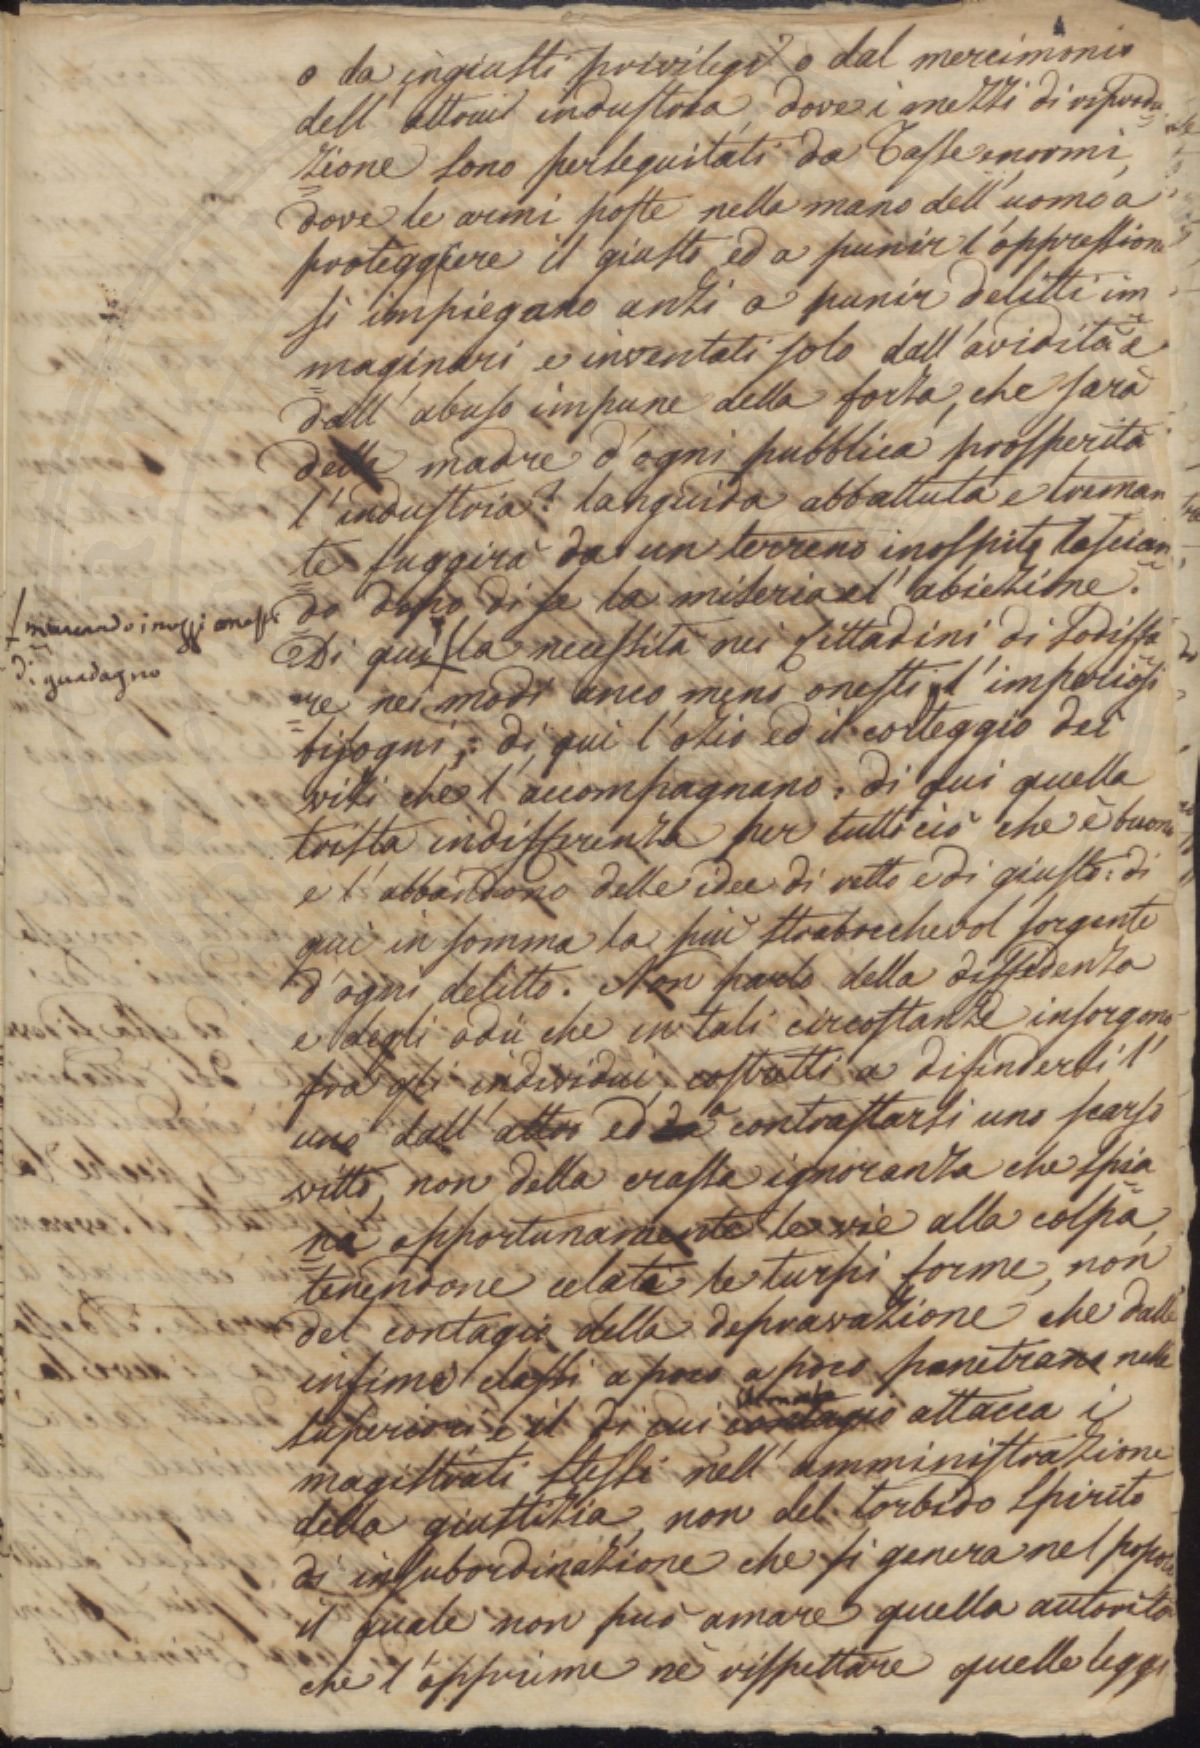 o da ingiusti privilegi o dal mercimonio
dell' altrui industria, dove i mezzi di riprodu
zione sono perseguitati da Tasse enormi,
dove le armi poste nella mano dell'uomo a
proteggere il giusto ed a punir l'oppressione
si impiegano anzi a punir delitti im
maginari e inventati solo dall'avidità e
dall'abuso impune della forza, che sarà
della madre d'ogni pubblica prosperità
l'industria? languida abbattuta e treman
te fuggirà da un terreno inospite lascian
do dopo di se la miseria e l'abiezione.
Di qui la necessità nei Cittadini di sodisfa
re nei modi anco meno onesti l'imperiosi
bisogni; di qui l'ozio ed il corteggio dei
vizi che l'accompagnano: di qui quella
trista indifferenza per tutto ciò che è buono
e l'abbandono delle idee di retto e di giusto: di
qui in somma la più strabocchevol sorgente
d'ogni delitto. Non parlo della diffidenza
e degli odii che in tali circostanze insorgono
fra gli individui, costretti a difendersi l'
uno dall'altro ed a contrastarsi uno scarso
vitto, non della crassa ignoranza che spia
na opportunamente le vie alla colpa,
tenendone celate le turpi forme, non
del contagio della depravazione che dalle
infime classi a poco a poco penetrano nelle
superiori e il di cui contagio attacca i
magistrati stessi nell'amministrazione
della giustizia, non del torbido spirito
di insubordinazione che si genera nel popolo
il quale non può amare quella autorità
che l'opprime nè rispettare quelle leggi
mancando i mezzi onesti
di guadagno